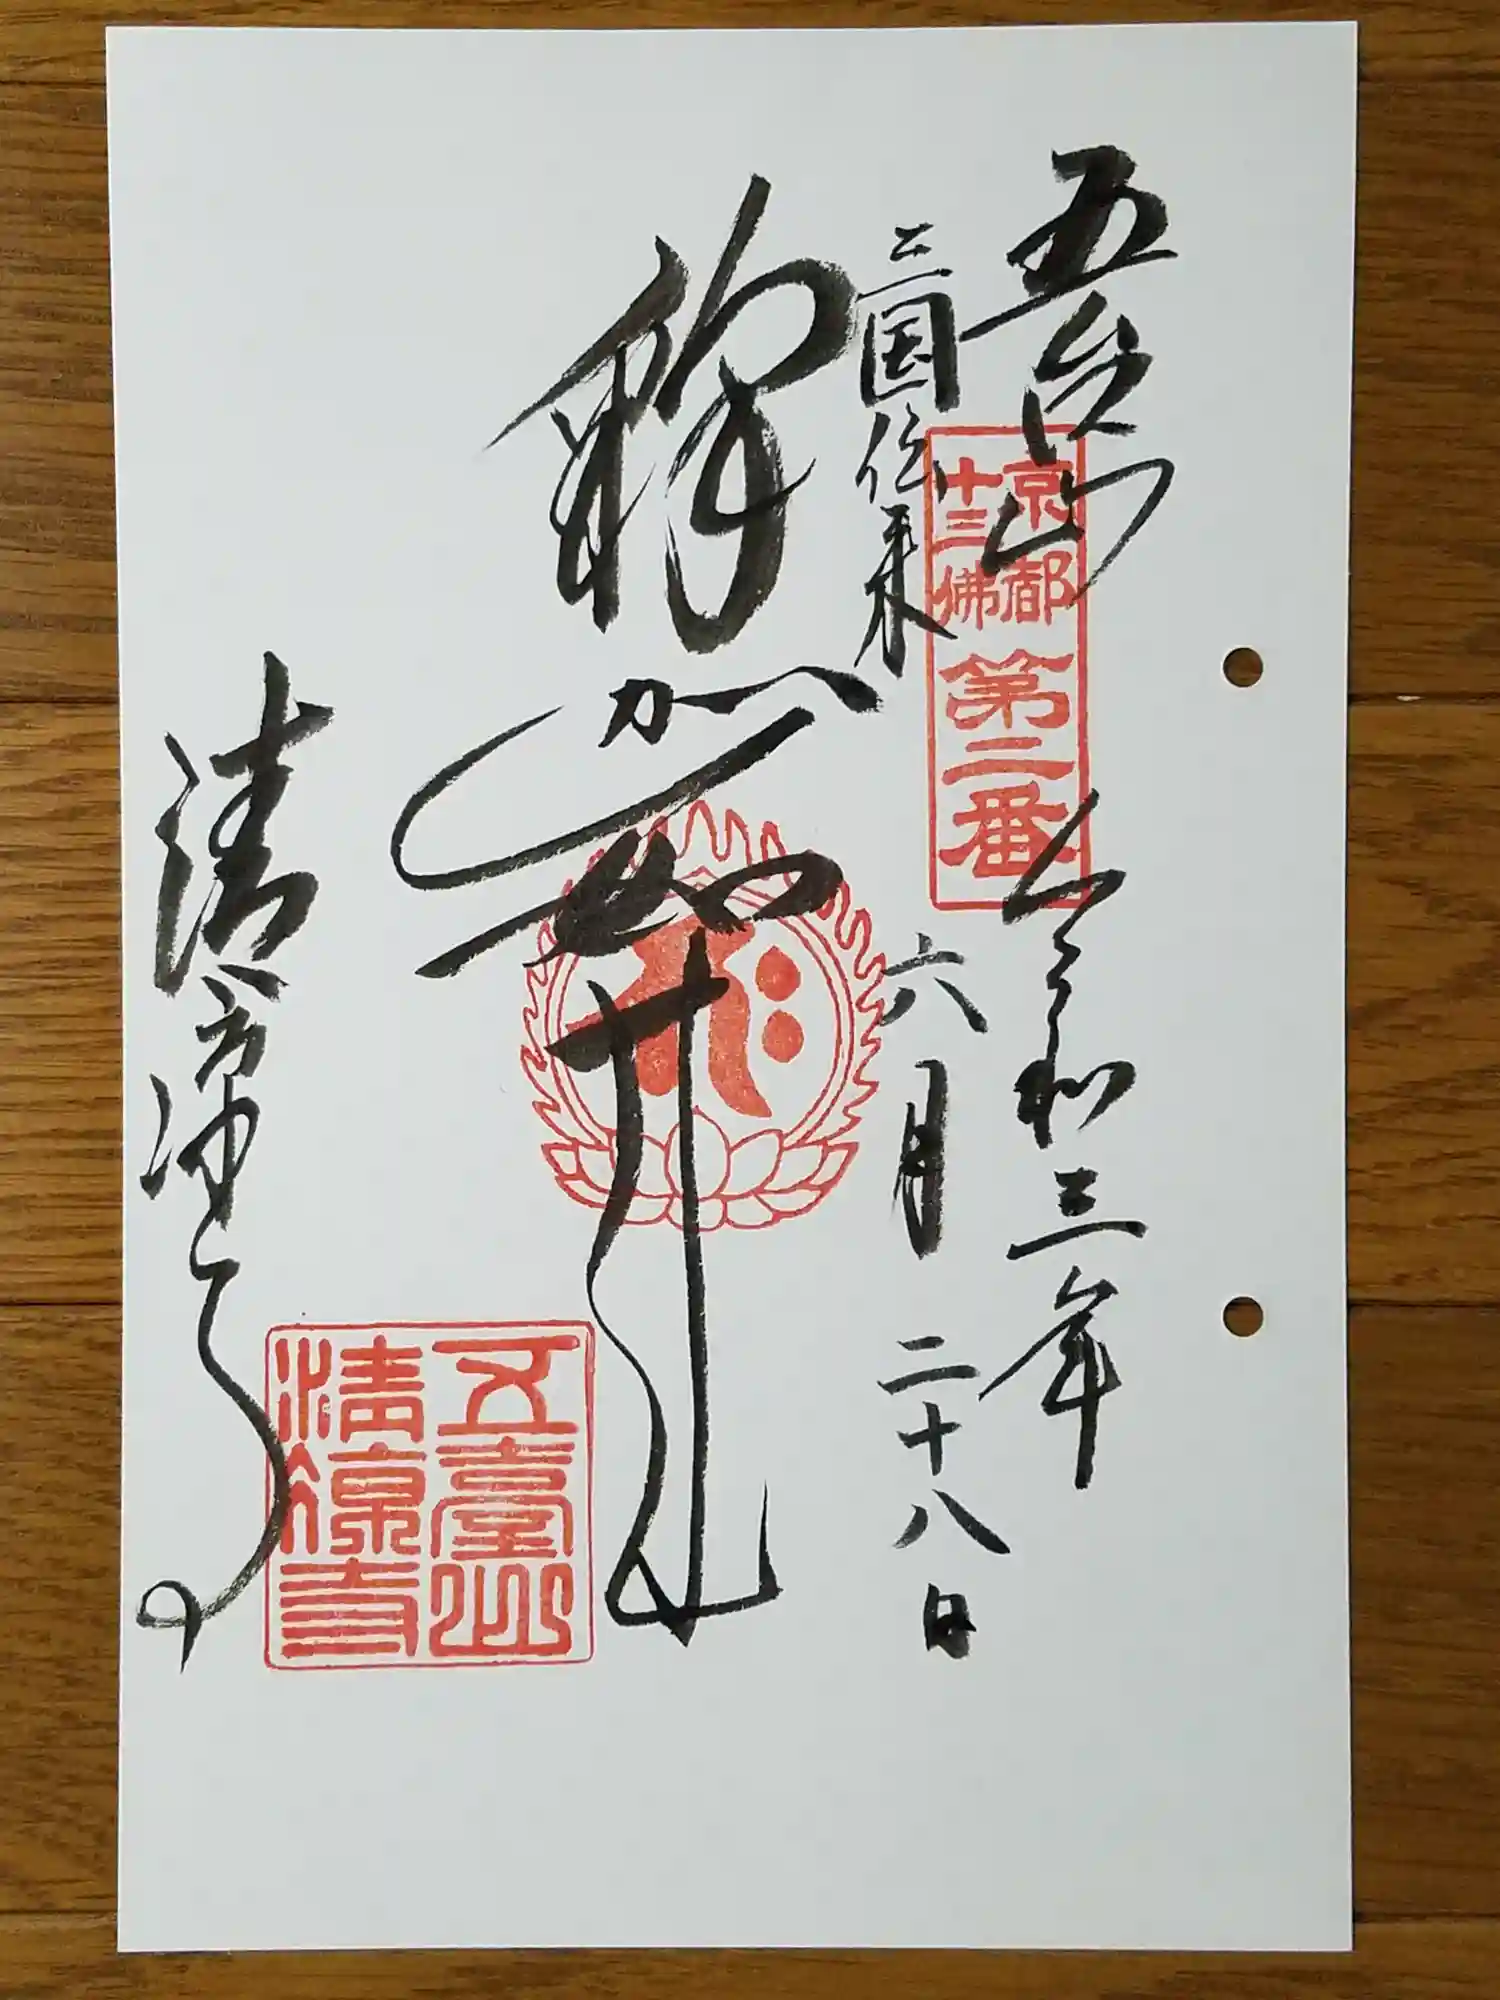 五台山
京都
十三佛
第二番
令和三年
三国伝来
六月二十八日
釈迦如来
清凉寺
五臺山
清凉寺